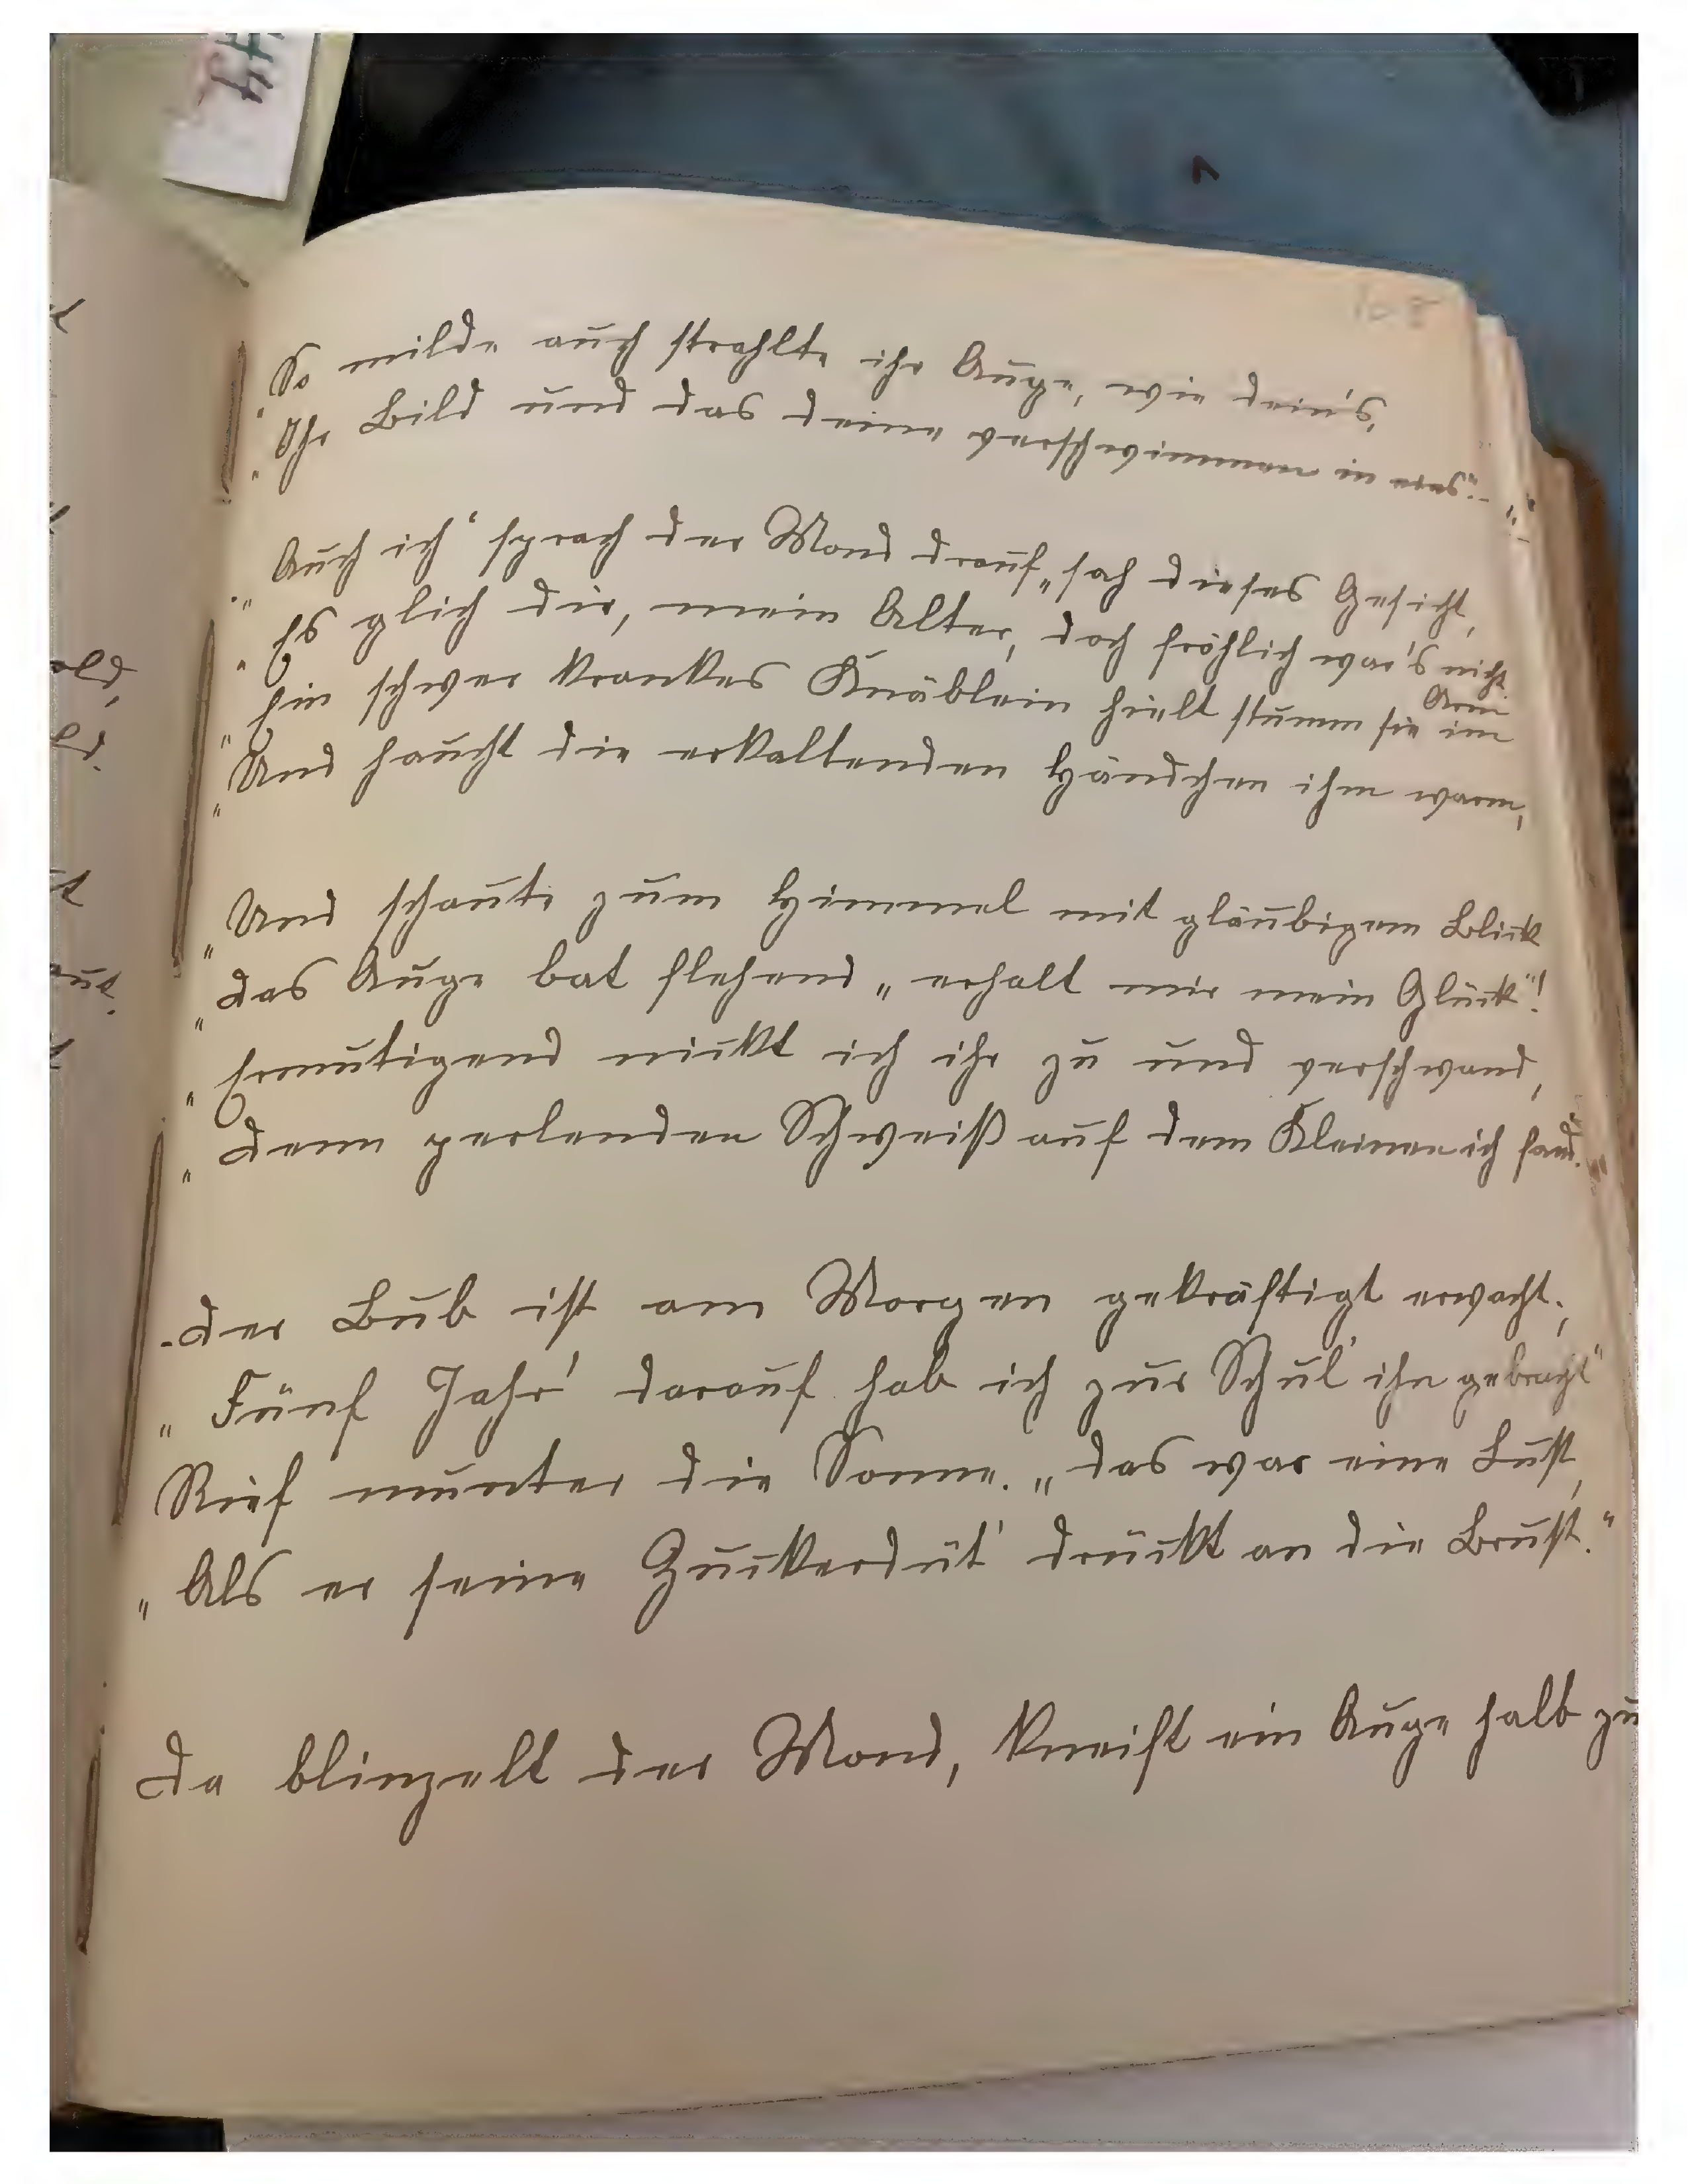 108
„So milde auch strahlte ihr Auge, wie dein's,
„Ihr Bild und das deine verschwimmen in eines“.-
„Auch ich“ sprach der Mond drauf „sah dieses Gesicht,
„Es glich dir, mein Alter, doch fröhlich war's nicht.
„Ein schwer krankes Knäblein hielt stumm sie im Arm
„Und haucht die erkaltenden Händchen ihm warm,
„Und schaute zum Himmel mit gläubigem Blick
„Das Auge bat flehend „erhalt mir mein Glück“!
„Ermutigend nickt ich ihr zu und verschwand,
„Denn perlenden Schweiß auf dem Kleinen ich fand.“
-Der Bub ist am Morgen gekräftigt erwacht;
„Fünf Jahr' darauf hab ich zur Schul' ihn gebracht“
Rief munter die Sonne. „Das war eine Lust,
„Als er seine Zuckerdüt' drückt an die Brust.“
Da blinzelt der Mond, kneift ein Auge halb zu